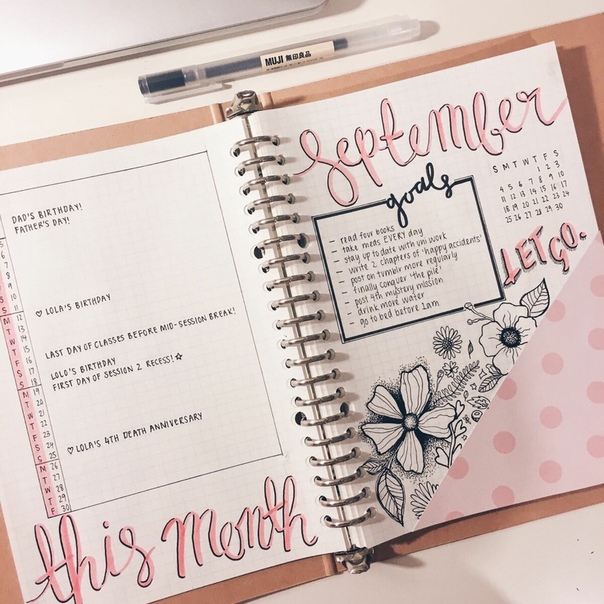 MUJI 無印良品
DAD'S BIRTHDAY!
FATHER'S DAY!
5
6
7
8
9
10
M 12
T 13
♡ LOLA'S BIRTHDAY
W 14
T 15
LAST DAY OF CLASSES BEFORE MID-SESSION BREAK!
S 17
LOLO'S BIRTHDAY
S 18
FIRST DAY OF SESSION 2 RECESS! ☆
M 19
T 20
W 21
T 22
F 23
S 24
S 25
♡ LOLA'S 4TH DEATH ANNIVERSARY
M 26
T 27
W 28
T 29
F 30
this month
September
goals
- read four books
- take meds EVERY day
- stay up to date with uni work
- write 2 chapters of 'happy accidents'
- post on tumblr more regularly
- finally conquer 'the pile'
- post 4th mystery mission
- drink more water
- go to bed before 2am
S M T W T F S
1 2 3
4 5 6 7 8 9 10
11 12 13 14 15 16 17
18 19 20 21 22 23 24
25 26 27 28 29 30
LET GO.